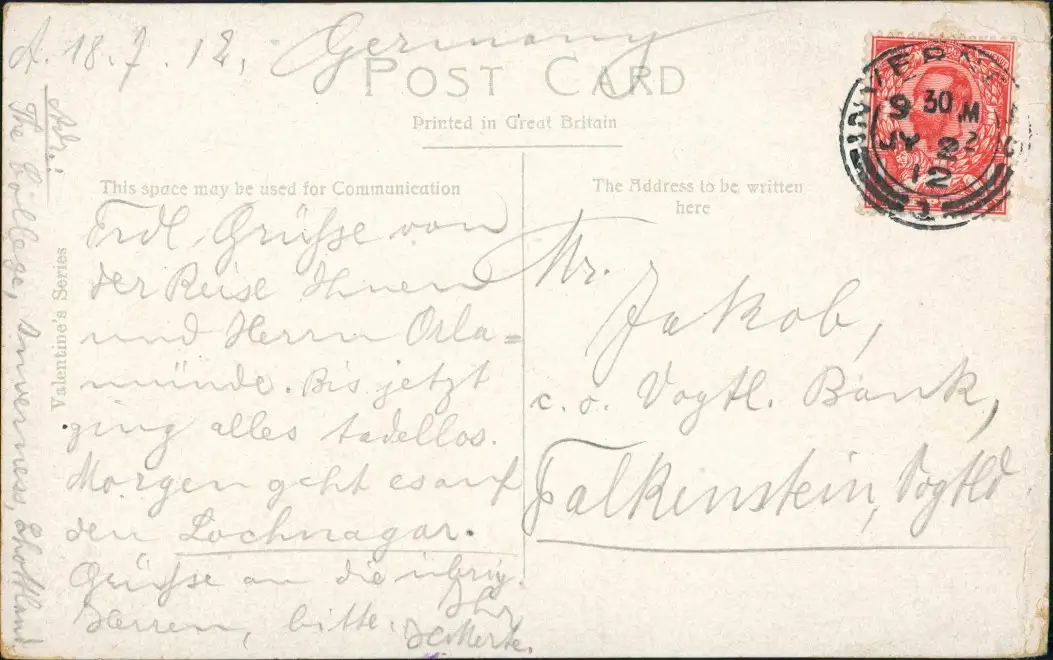 A. 18.7.12. Germany
POST CARD
Printed in Great Britain
This space may be used for Communication
The Address to be written
here
Frdl. Grüsse von
der Reise Ihnen
und Herrn Orla=
münde. Bis jetzt
ging alles tadellos.
Morgen geht es auf
den Lochnagar.
Grüsse an die übrig.
Herren, bitte. Ihr
Mr. Jakob,
c. o. Vogtl. Bank,
Falkenstein, Vogtld
Adr.:
The College, Inverness, Schottland
Valentine's Series
9 30 M
JY 22
12
1